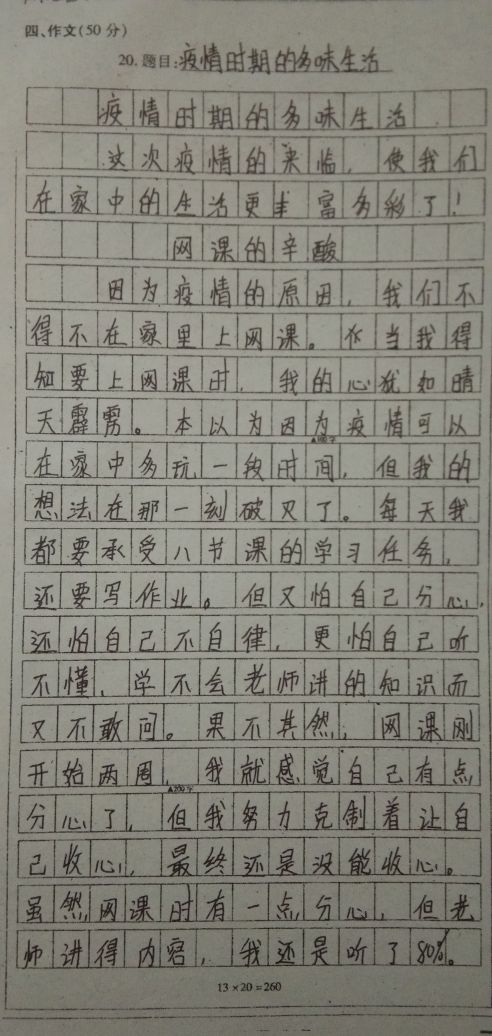 四、作文(50分)
20. 题目:疫情时期的多味生活
疫情时期的多味生活
这次疫情的来临，使我们
在家中的生活更丰富多彩了！
网课的辛酸
因为疫情的原因，我们不
得不在家里上网课。当我得
知要上网课时，我的心犹如晴
天霹雳。本以为因为疫情可以
▲100字
在家中多玩一段时间，但我的
想法在那一刻破灭了。每天我
都要承受八节课的学习任务，
还要写作业。但又怕自己分心，
还怕自己不自律，更怕自己听
不懂，学不会老师讲的知识而
又不敢问。果不其然，网课刚
开始两周，我就感觉自己有点
▲200字
分心了，但我努力克制着让自
己收心，最终还是没能收心。
虽然网课时有一点分心，但老
师讲得内容，我还是听了80%。
13×20=260